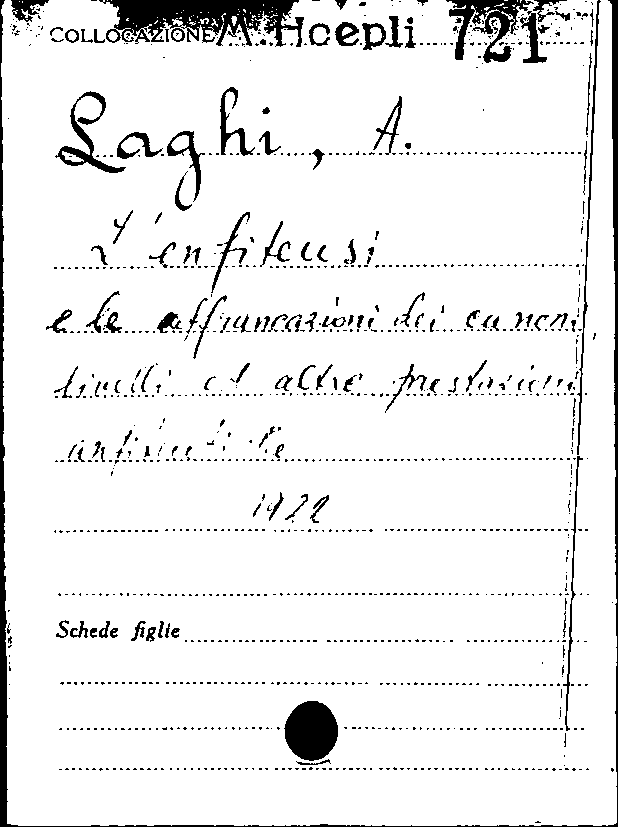 COLLOCAZIONE M. Hoepli 721
Laghi, A.
L'enfiteusi
e le affrancazioni dei canoni,
livelli ed altre prestazioni
enfiteutiche
1922
Schede figlie